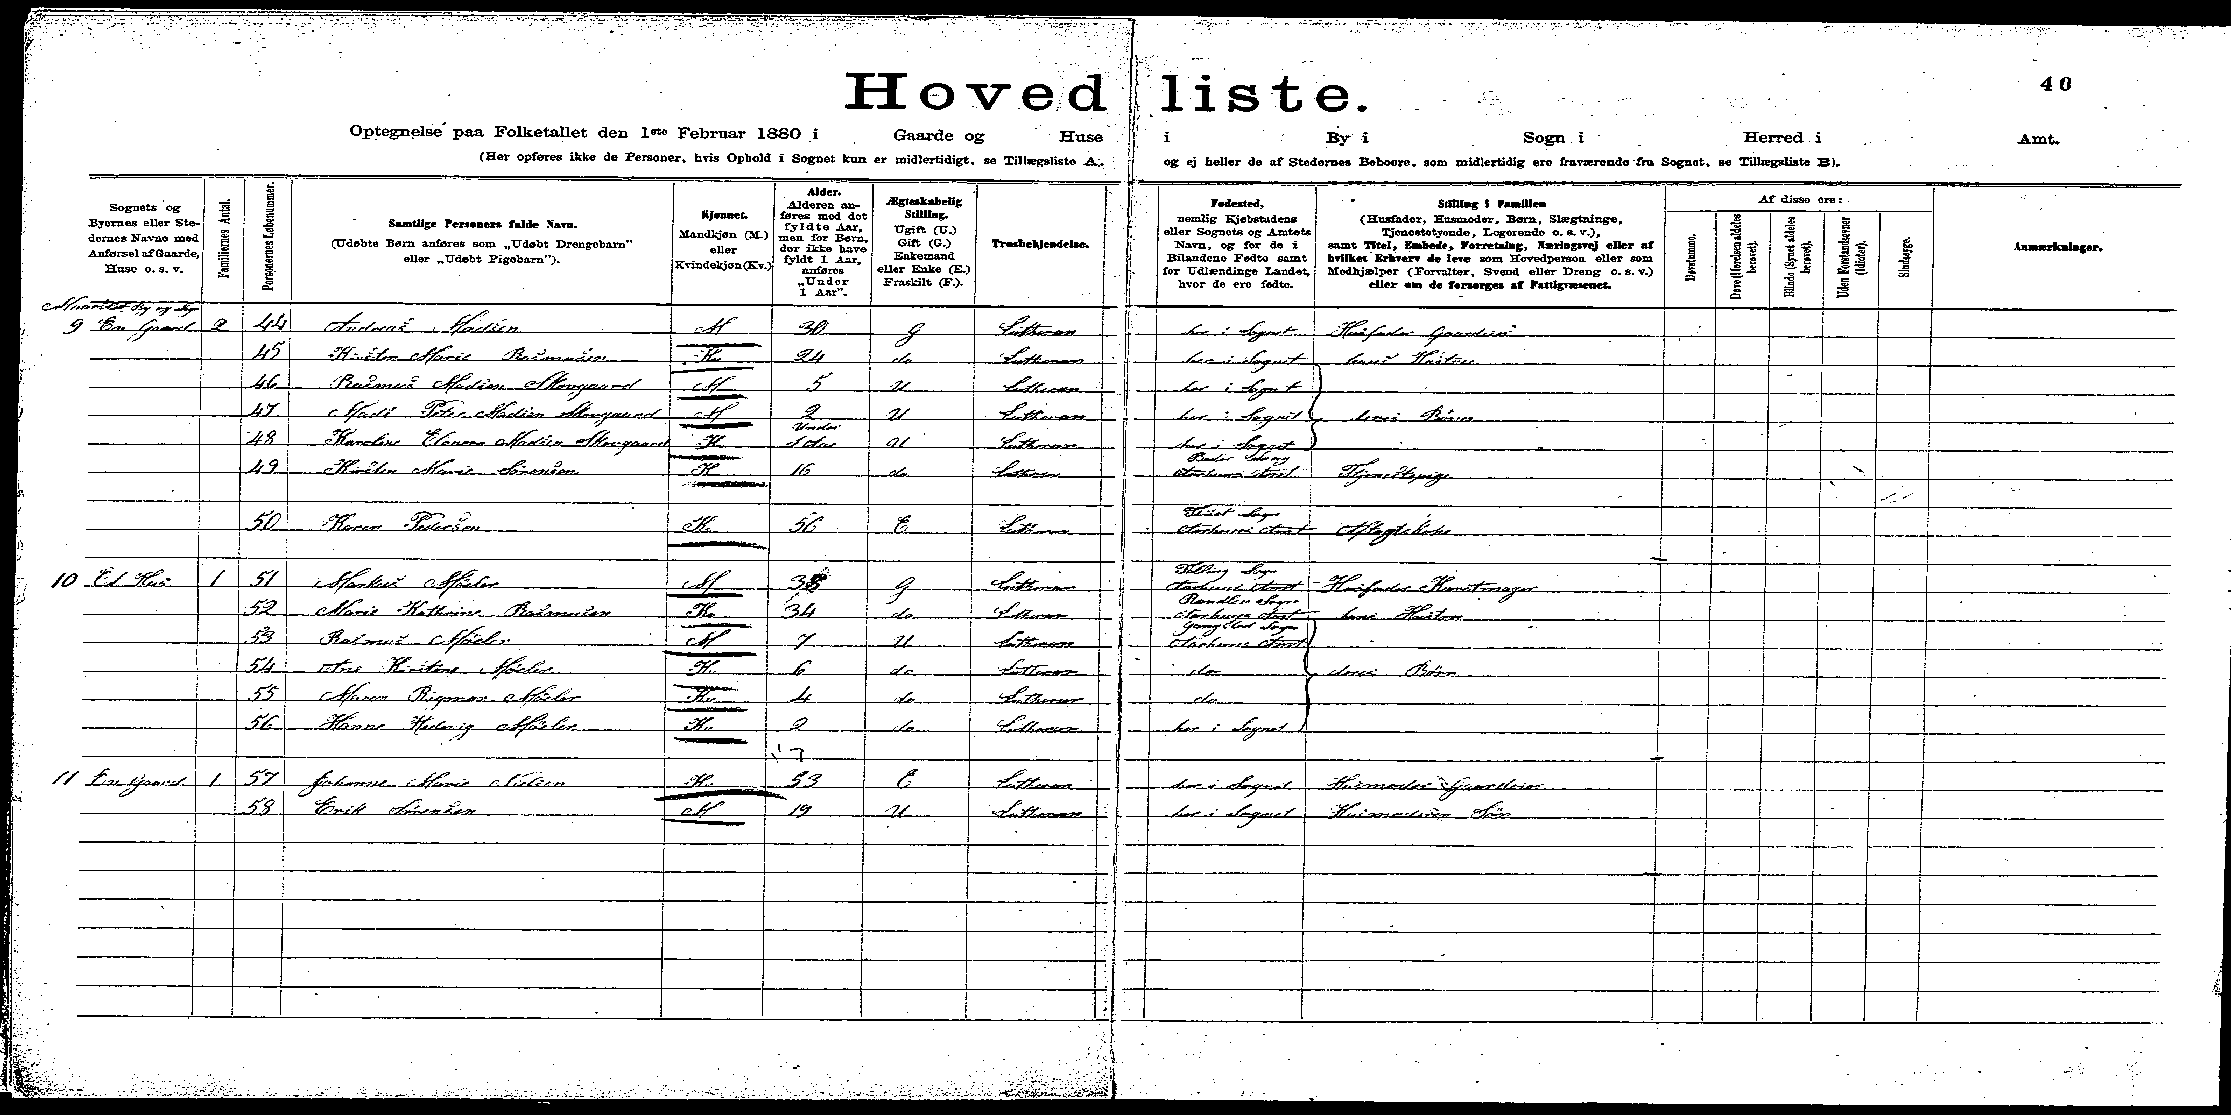 Hovedliste.
40
Optegnelse paa Folketallet den 1ste Februar 1880 i Gaarde og Huse i By i Sogn i Herred i Amt.
(Her opføres ikke de Personer, hvis Ophold i Sognet kun er midlertidigt, se Tillægsliste A, og ej heller de af Stedernes Beboere, som midlertidig ere fraværende fra Sognet, se Tillægsliste B).
Sognets og Byernes eller Stedernes Navne med Anførsel af Gaarde, Huse o. s. v.
Familiernes Antal.
Personernes Løbenummer.
Samtlige Personers fulde Navn.
(Udøbte Børn anføres som „Udøbt Drengebarn" eller „Udøbt Pigebarn").
Kjønnet.
Mandkjøn (M.) eller Kvindekjøn (Kv.)
Alder.
Alderen anføres med det fyldte Aar, men for Børn, der ikke have fyldt 1 Aar, anføres „Under 1 Aar".
Ægteskabelig Stilling.
Ugift (U.) Gift (G.) Enkemand eller Enke (E.) Fraskilt (F.).
Troesbekjendelse.
Fødested,
nemlig Kjøbstadens eller Sognets og Amtets Navn, og for de i Bilandene Fødte samt for Udlændinge Landet, hvor de ere fødte.
Stilling i Familien
(Husfader, Husmoder, Børn, Slægtninge, Tjenestetyende, Logerende o. s. v.),
samt Titel, Embede, Forretning, Næringsvej eller af hvilket Erhverv de leve som Hovedperson eller som Medhjælper (Forvalter, Svend eller Dreng o. s. v.) eller om de forsørges af Fattigvæsenet.
Af disse ere:
Døvstumme.
Døve (Hørelsen aldeles berøvet).
Blinde (Synet aldeles berøvet).
Uden Forstandsevner (Idioter).
Sindssyge.
Anmærkninger.
By og Sogn
9 En Gaard 2 44 Andreas Madsen M 30 G Lutheran her i Sognet Huusfader Gaardeier
45 Kirsten Marie Rasmussen K. 24 do Lutheran her i Sognet hans Hustru
46 Rasmus Madsen Skovgaard M 5 U Lutheran her i Sognet
47 Mads Peter Madsen Skovgaard M 2 U Lutheran her i Sognet deres Børn
48 Karoline Madsen Skovgaard K. Under 1 Aar U Lutheran her i Sognet
49 Kirsten Marie Sørensen K 16 do Lutheran Aarhuus Amt Tjenestepige
50 Karen Pedersen K. 56 E Lutheran Tiset Sogn Aarhuus Amt Aftægtskone
10 Et Hus 1 51 Markus Møeler M 38 G Lutheran Sogn Aarhuus Amt Huusfader
52 Marie Kathrine Rasmussen K. 34 do Lutheran Randlev Sogn Aarhuus Amt hans Hustru
53 Rasmus Møeler M 7 U Lutheran Sogn Aarhuus Amt
54 Ane Kirstine Møeler K. 6 do Lutheran do deres Børn
55 Maren Møeler K. 4 do Lutheran do
56 Hanne Hedvig Møeler K. 2 do Lutheran her i Sognet
11 En Gaard 1 57 Johanne Marie Nielsen K. 53 E Lutheran her i Sognet Huusmoder Gaardeier
58 Erik Sørensen M 19 U Lutheran her i Sognet Huusmoderen Søn